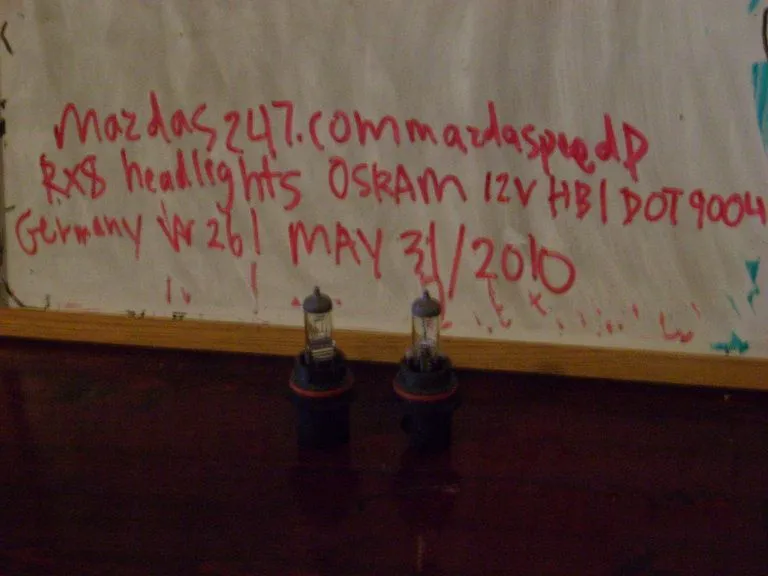 Mazdas247.com mazdaspeedP
RX8 headlights OSRAM 12V HB1 DOT 9004
Germany W 261 MAY 31/2010